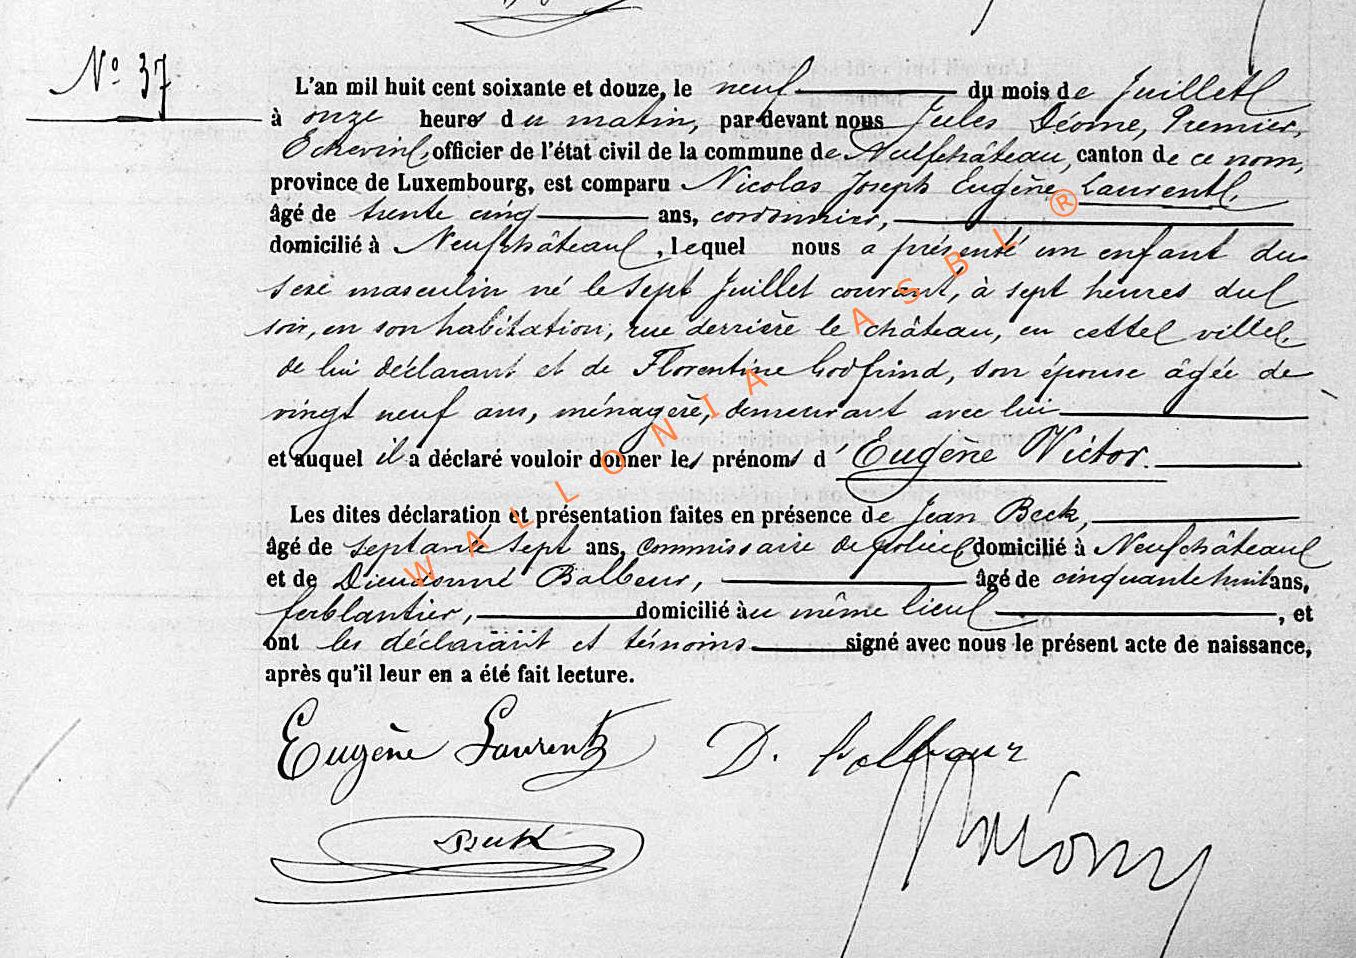 N° 37
L'an mil huit cent soixante et douze, le neuf du mois de Juillet
à onze heures du matin, par devant nous Jules Déome, Premier
Echevin, officier de l'état civil de la commune de Neufchâteau, canton de ce nom,
province de Luxembourg, est comparu Nicolas Joseph Eugène Laurent,
âgé de trente cinq ans, cordonnier,
domicilié à Neufchâteau, lequel nous a présenté un enfant du
sexe masculin né le sept Juillet courant, à sept heures du
soir, en son habitation, rue derrière le château, en cette ville,
de lui déclarant et de Florentine Godfrind, son épouse âgée de
vingt neuf ans, ménagère, demeurant avec lui
et auquel il a déclaré vouloir donner les prénoms d'Eugène Victor.
Les dites déclaration et présentation faites en présence de Jean Beck,
âgé de septante sept ans, commissaire de police domicilié à Neufchâteau
et de Dieudonné Balbeur, âgé de cinquante huit ans,
ferblantier, domicilié au même lieu, et
ont les déclarant et témoins signé avec nous le présent acte de naissance,
après qu'il leur en a été fait lecture.
Eugène Laurent D. Balbeur
Beck
WALLONIA ASBL ®